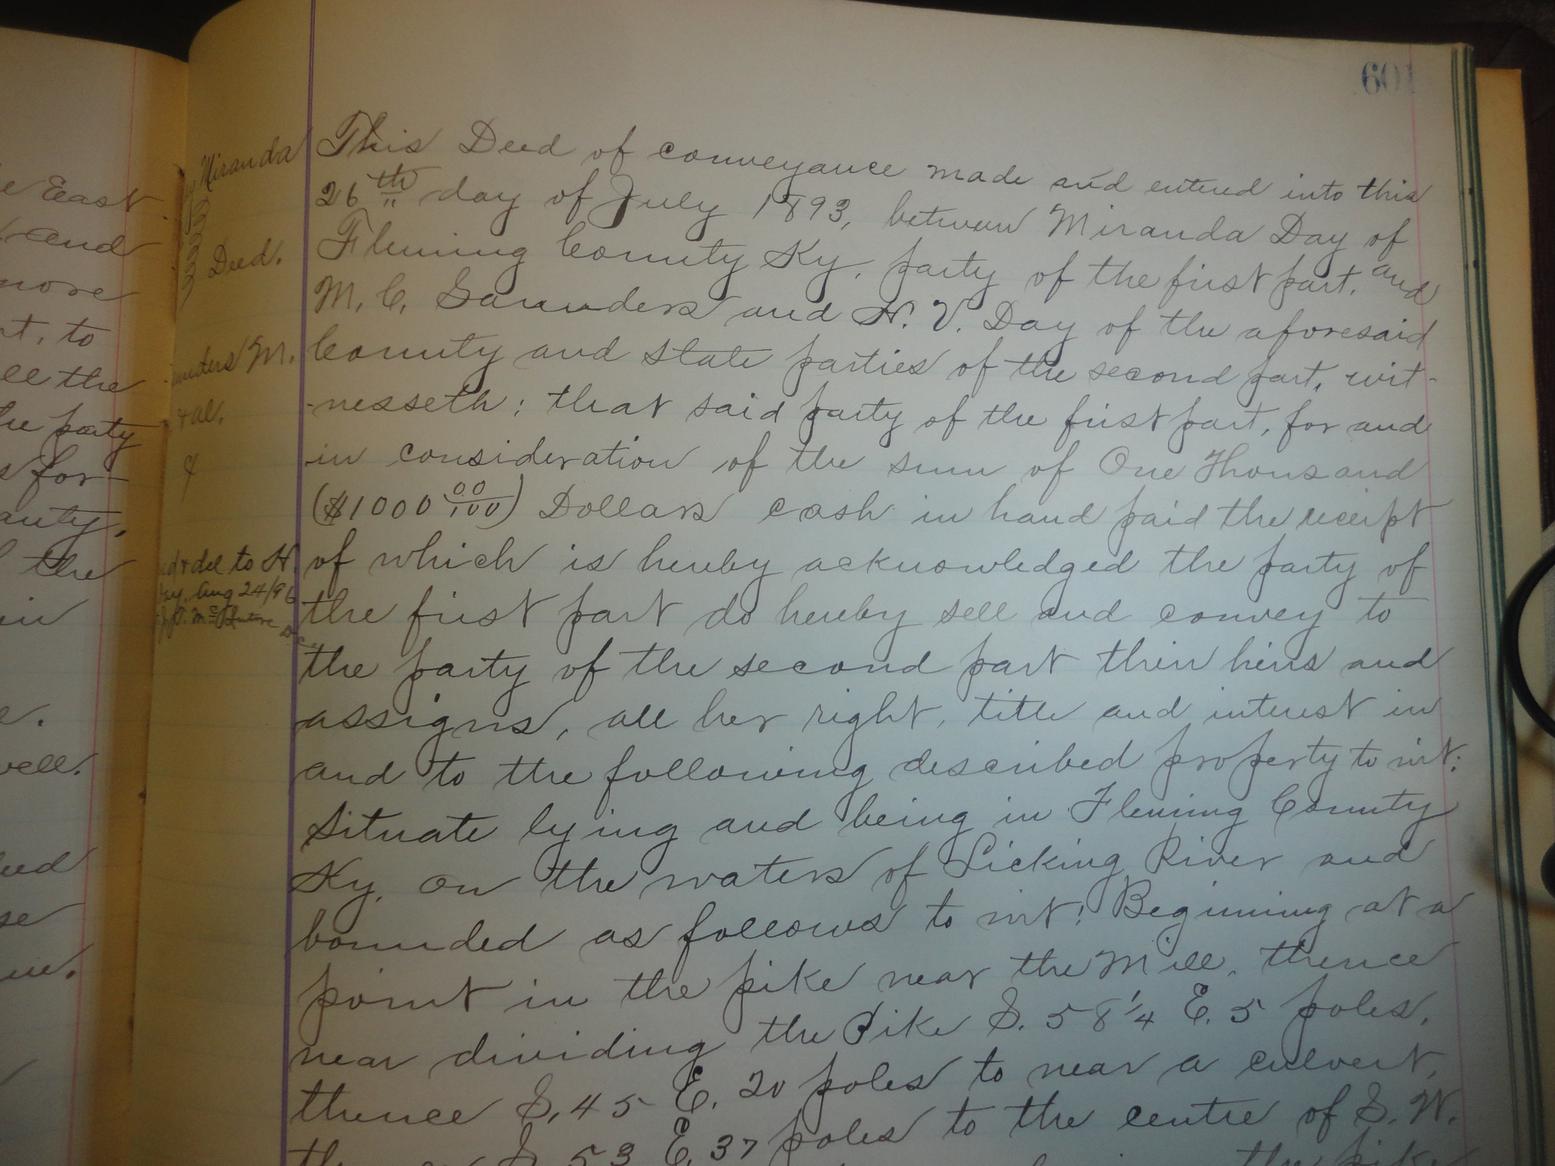 601
This Deed of conveyance made and entered into this
26th day of July 1893, between Miranda Day of
Fleming County Ky, party of the first part, and
M. C. Saunders and H. V. Day of the aforesaid
County and State parties of the second part, wit-
-nesseth: that said party of the first part, for and
in consideration of the sum of One Thousand
($1000 00/100) Dollars cash in hand paid the receipt
of which is hereby acknowledged the party of
the first part do hereby sell and convey to
the party of the second part their heirs and
assigns, all her right, title and interest in
and to the following described property to wit:
Situate lying and being in Fleming County
Ky, on the waters of Licking River and
bounded as follows to wit: Beginning at a
point in the pike near the Mill, thence
near dividing the Pike S. 58 1/4 E. 5 poles,
thence S. 45 E. 20 poles to near a culvert,
S. 53 E. 37 poles to the centre of S. W.
the pike
Miranda
Deed.
M.
&al.
del to H.
Aug 24/96
e East
and
more
t, to
ll the
he party
s for-
anty,
the
in
e.
well.
se